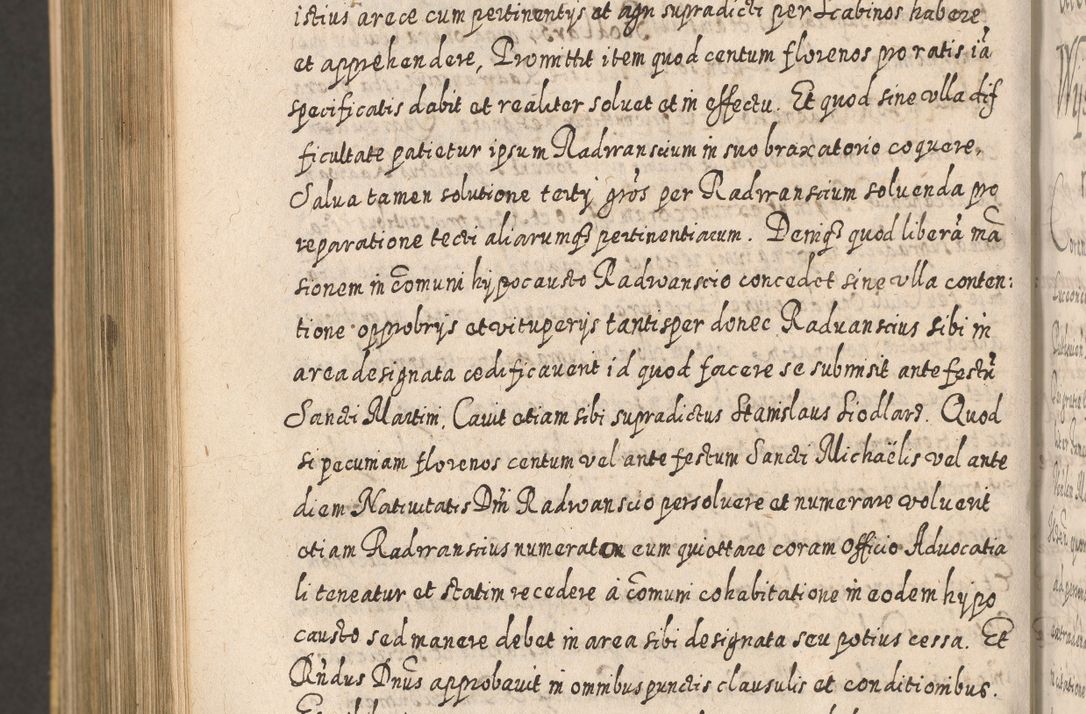 istius arece cum pertinentijs et agri supradicti per Scabinos habere
et apprehendere, Promittit item quod centum florenos pro ratis ià
specificatis dabit et realiter soluet et in effectu. Et quod sine vlla dif
ficultate patietur ipsum Radwanscium in suo braxatorio coquere,
Salua tamen solutione tertij gròs per Radwanscium soluenda pro
reparatione tecti aliarumq3 pertinentiarum. Demq3 quod liberā mā
sionem in cōmuni hypocausto Radwanscio concedet sine vlla conten:
tione opprobrijs et vituperijs tantisper donec Raduanscius sibi in
area designata cedificauerit id quod facere se submisit ante festū
Sancti Martini. Cauit etiam sibi supradictus Stanislaus Siodlarz. Quod
si pecuniam florenos centum vel ante festum Sancti Michaëlis vel ante
diem Natiuitatis Dñi Radwanscio persoluere et numerare voluerit
etiam Radwanscius numeraton eum quiottare coram Officio Aduocatia
li teneatur et statim recedere à cōmuni cohabitatione in eodem hypo
causto sed manere debet in area sibi designata seu potius cessa. Et
Rñdus Dnūs approbauit in omnibus punctis clausulis et conditionibus.